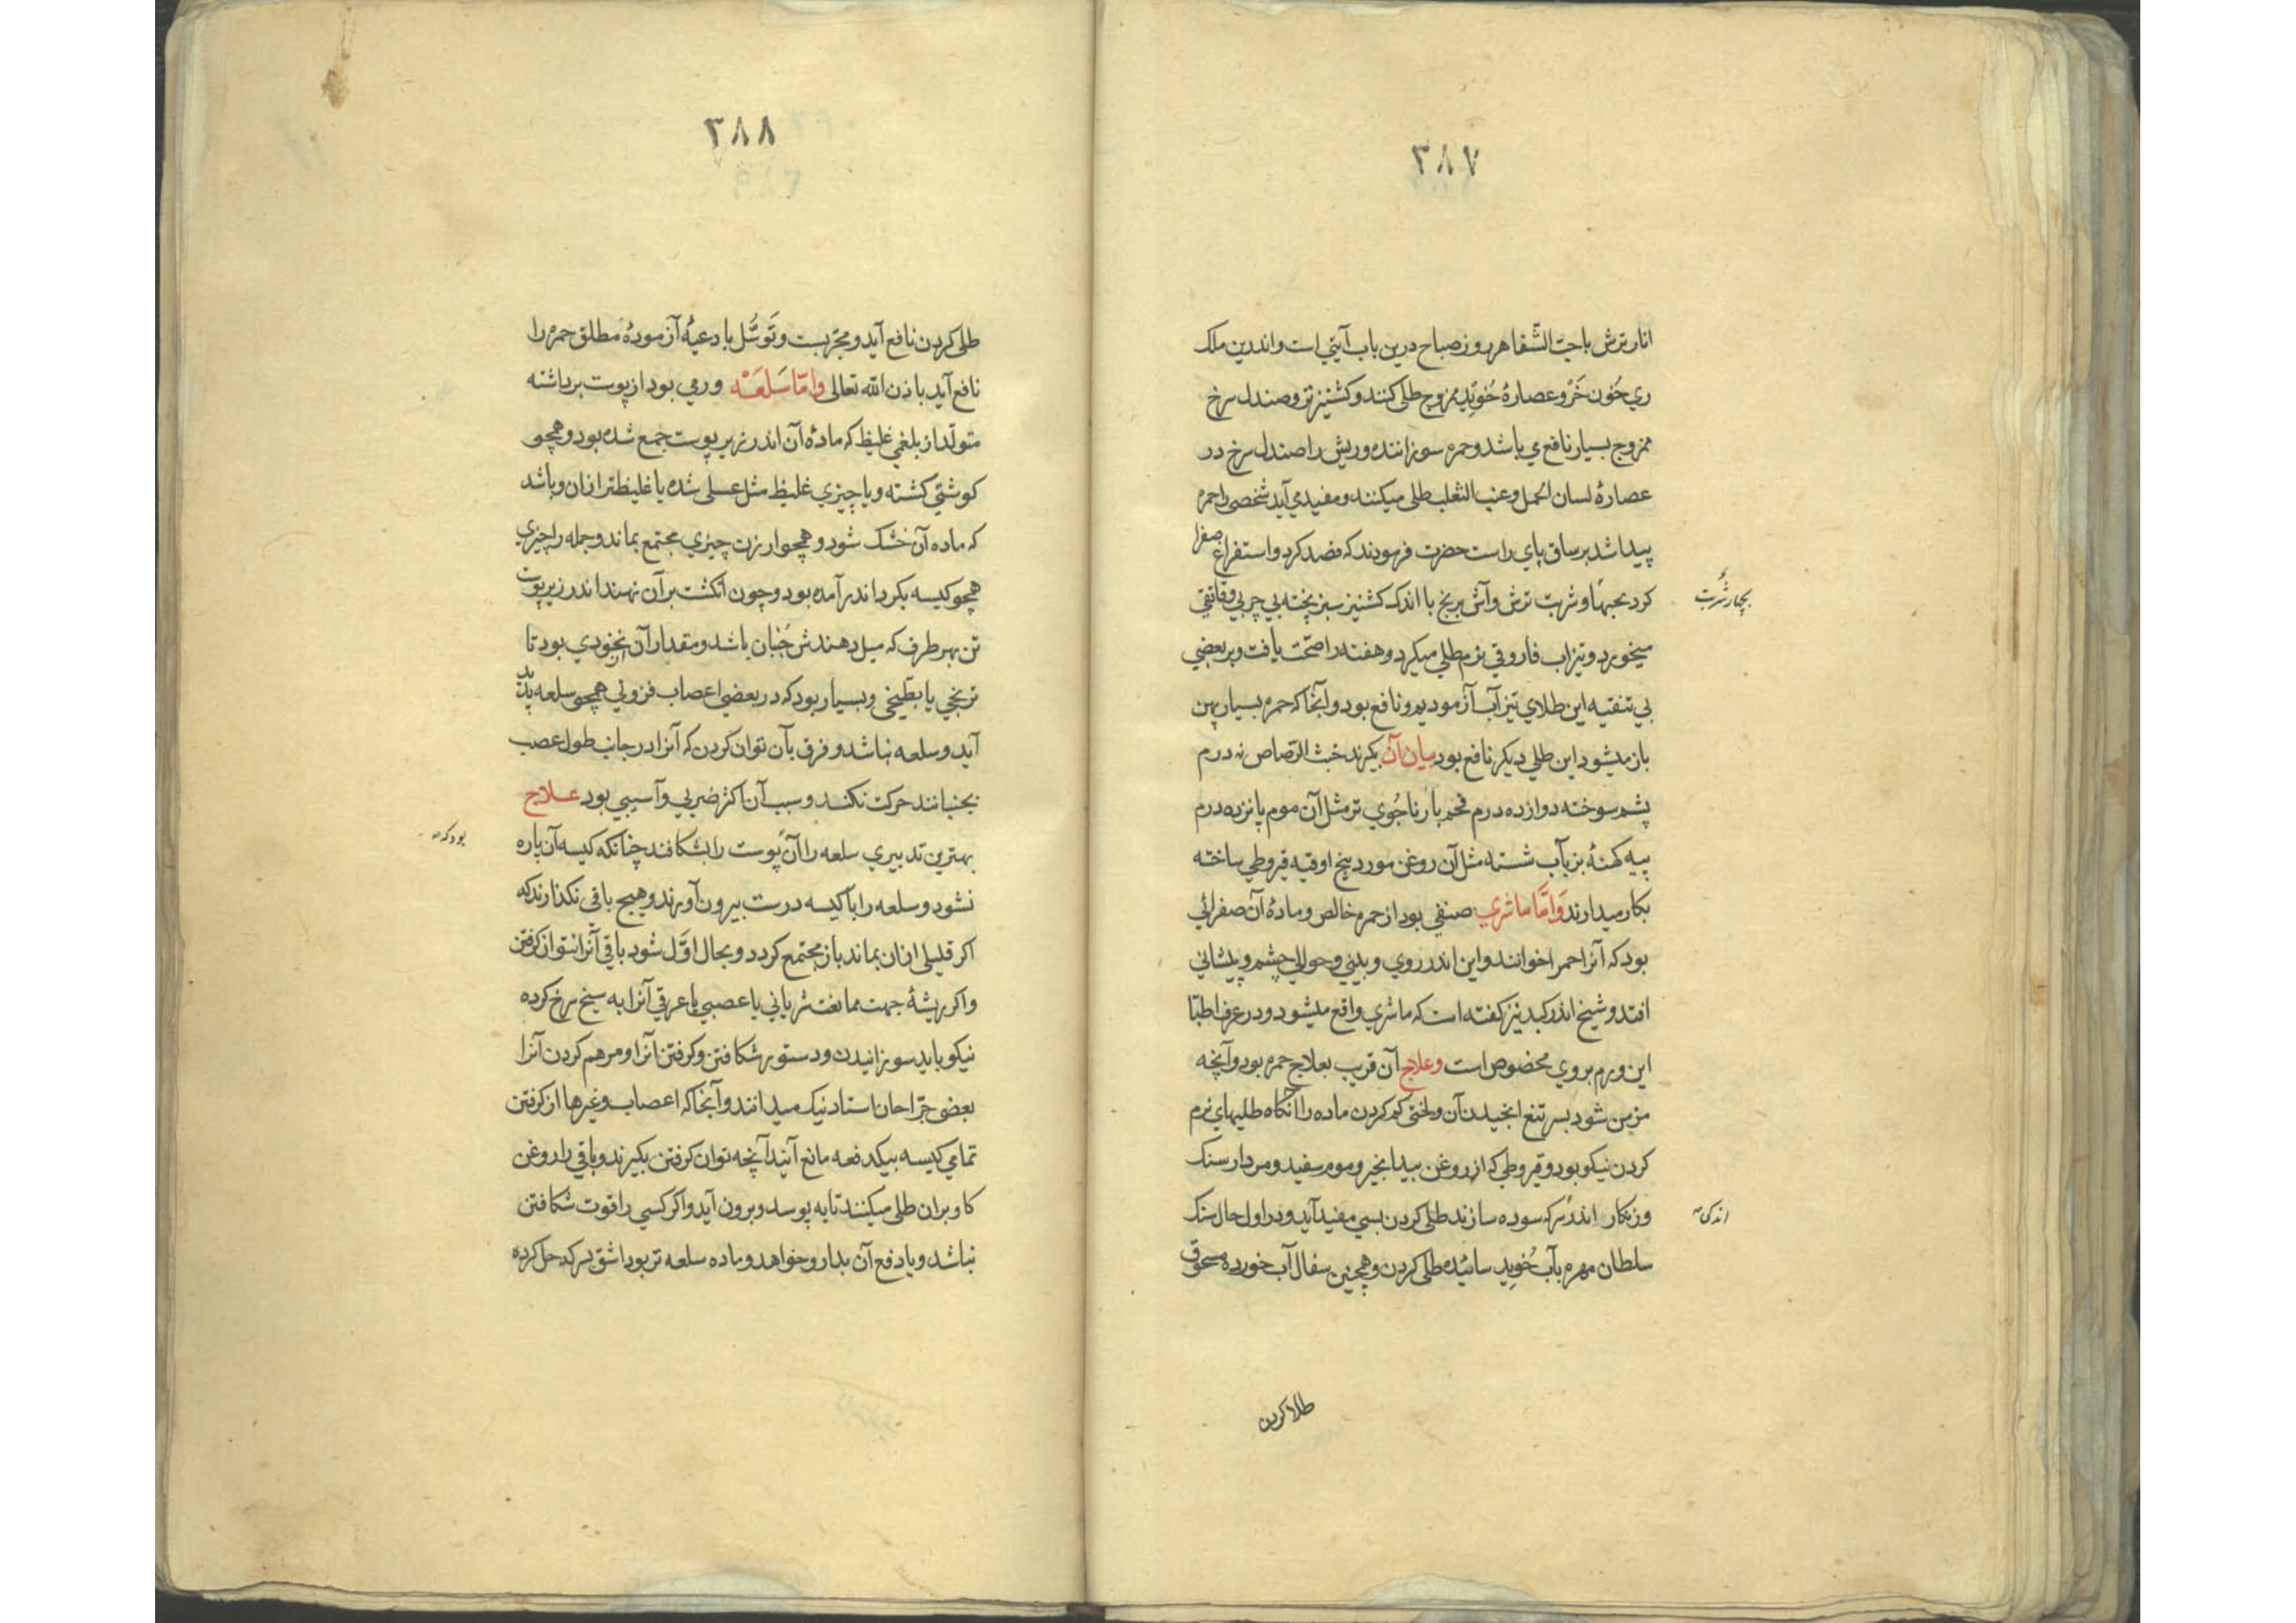 ۳۸۷
انار ترش با حبّ الشّفا هر روز صباح درین باب آیتی است و اندرین ملک
ری خُون خَر و عصارهٔ خُوَید ممزوج طلی کنند و کشنیز تر و صندل سرخ
ممزوج بسیار نافع می باشد و حمره سوزاننده و ریش را صندل سرخ در
عصارهٔ لسان الحمل و عنب الثعلب طلی میکنند و مفید می آید شخصی را حمره
پیدا شد بر ساق پای راست حضرت فرمودند که فصد کرد و استفراغ صفرا
کرد بحبها و شربت ترش و آش برنج با اندک کشنیز سبز پخته بی چربی و قاتقی
بچهار شربت
میخورد و تیزاب فاروقی نرم طلی میکرد و هفته را صحّت یافت و بر بعضی
بی تنقیه این طلای تیزآب آزمودیم و نافع بود و آنجا که حمره بسیار پهن
باز میشود این طلی دیکر نافع بود بیان آن بکیرند خبث الرّصاص نه درم
پشم سوخته دوازده درم فحم بار ناجُوی تر مثل آن موم پانزده درم
پیه کهنهٔ بز بآب شسته مثل آن روغن مورد پنج اوقیه قیروطی ساخته
بکار میدارند وَامّا ماشری صنفی بود از حمره خالص و مادهٔ آن صفرائی
بود که آنرا حمرا خوانند و این اندر روی و بینی و حوالی چشم و پیشانی
افتد و شیخ اندر کبد نیز کفته است که ماشری واقع میشود و در عرف اطبّا
این ورم بروی مخصوص است وعلاج آن قریب بعلاج حمره بود و آنچه
مزمن شود بسر تیغ انجیدن آن و لختی کم کردن ماده را آنکاه طلیهای نرم
کردن نیکو بود و قیروطی که از روغن بیدانجیر و موم سفید و مردار سنک
و زنکار اندر سرکه سوده سازند طلی کردن بسی مفید آید و در اول حال سنک
اندکی
سلطان مهره بآب خُوید سائیده طلی کردن و همچنین سفال آب خورده مسحوق
طلا کردن
۳۸۸
طلی کردن نافع آید و مجرّبست و تَوَسُّل بادعیهٔ آزمودهٔ مطلق حمره را
نافع آید باذن الله تعالی وامّا سَلعَه ورمی بود از پوست برداشته
متولّد از بلغمی غلیظ که مادهٔ آن اندر زیر پوست جمع شده بود و همچو
کوشتی کشته و یا چیزی غلیظ مثل عسلی شده یا غلیظتر ازان و باشد
که ماده آن خشک شود و همچو ارزن چیزی مجتمع بماند و جمله را چیزی
همچو کیسه بکرد اندر آمده بود و چون انکشت بر آن نهند اندر زیر پوست
تن بهر طرف که میل دهندش جُنبان باشد و مقدار آن از نخودی بود تا
ترنجی یا بطّیخی و بسیار بود که در بعضی اعصاب فزونی همچو سلعه پدید
آید و سلعه نباشد و فرق بآن توان کردن که آنرا در جانب طول عصب
بجنبانند حرکت نکند و سبب آن اکثر ضربی و آسیبی بود علاج
بهترین تدبیری سلعه را آن پوست را بشکافند چنانکه کیسه آن پاره
بود که
نشود و سلعه را با کیسه درست بیرون آورند و هیچ باقی نکذارند که
اکر قلیلی ازان بماند باز مجتمع کردد و بحال اوّل شود باقی آنرا نتوان کرفتن
و اکر ریشهٔ جهت ممانعت شریانی یا عصبی یا عرقی آنرا به سیخ سرخ کرده
نیکو باید سوزانیدن و دستور شکافتن و کرفتن آنرا و مرهم کردن آنرا
بعضی جرّاحان استاد نیک میدانند و آنجا که اعصاب و غیرها از کرفتن
تمامی کیسه بیکدفعه مانع آیند آنچه توان کرفتن بکیرند و باقی را روغن
کاو بران طلی میکنند تا به پوسد و برون آید و اکر کسی را قوت شکافتن
نباشد و یا دفع آن بدارو خواهد و ماده سلعه تر بود اشق بسرکه حل کرده